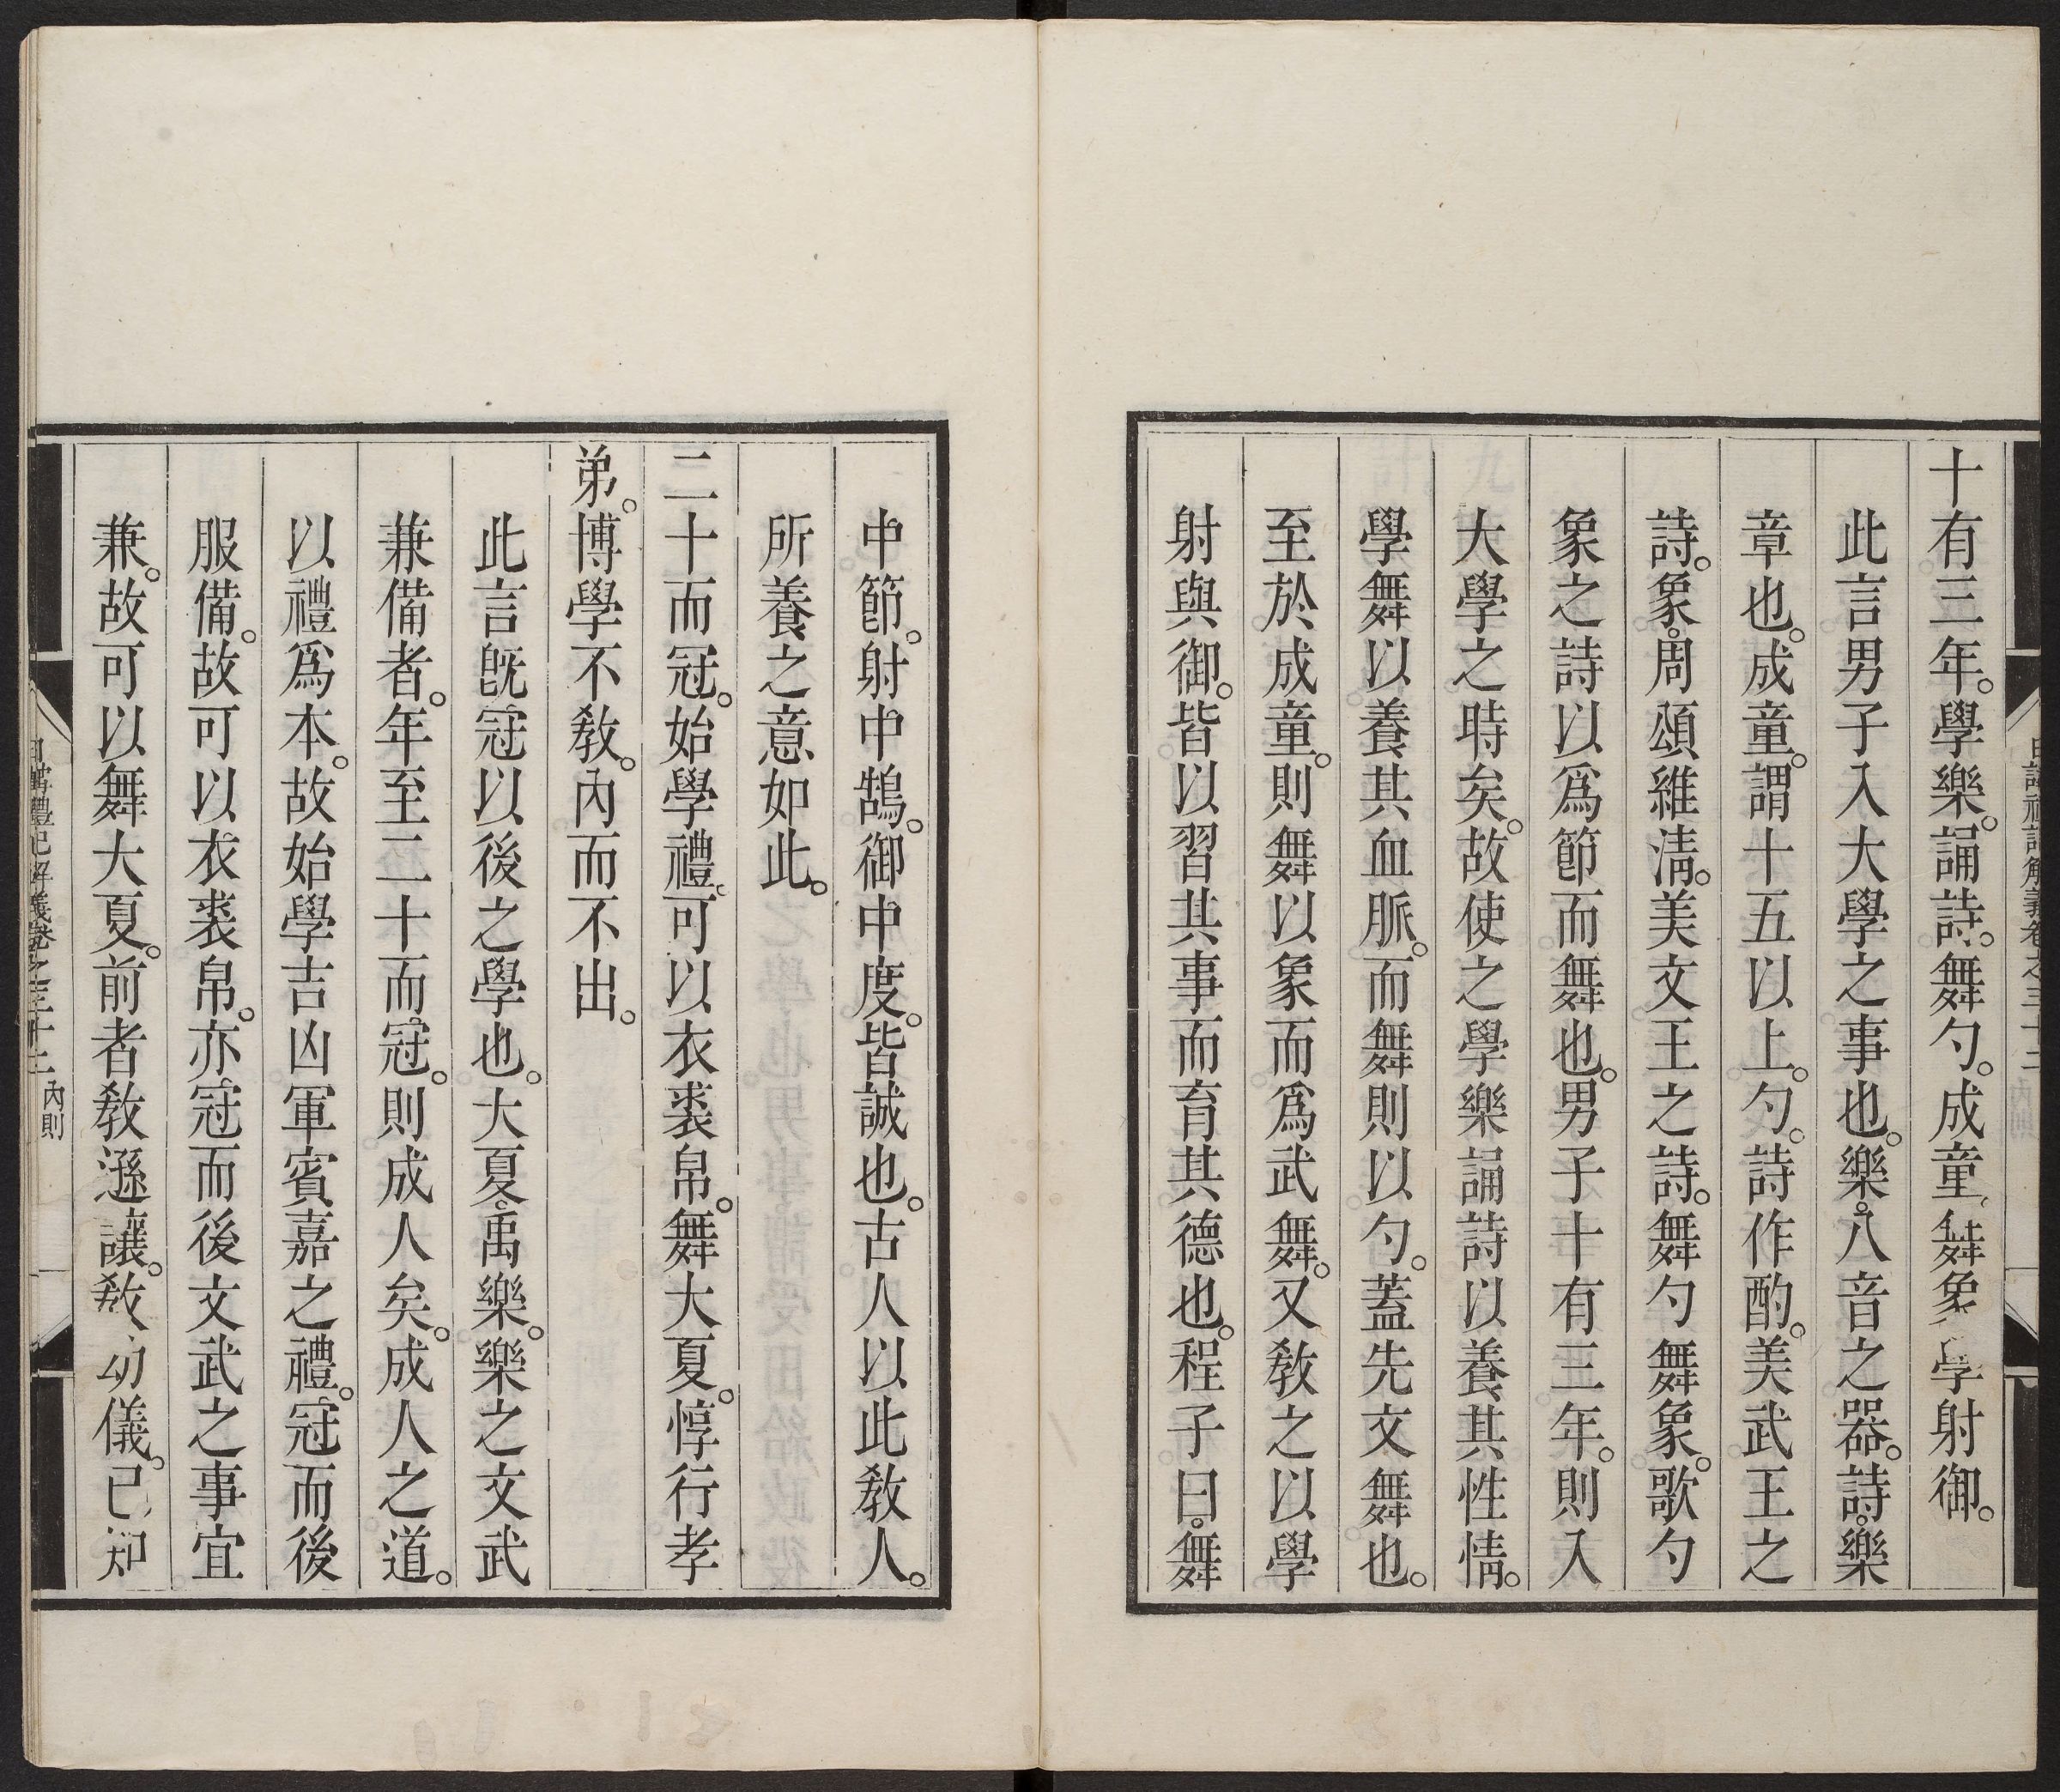 十有三年。學樂。誦詩。舞勺。成童。舞象。學射御。
此言男子入大學之事也。樂。八音之器。詩。樂
章也。成童。謂十五以上。勺。詩作酌。美武王之
詩。象。周頌維淸。美文王之詩。舞勺舞象。歌勺
象之詩以爲節而舞也。男子十有三年。則入
大學之時矣。故使之學樂誦詩以養其性情。
學舞以養其血脈。而舞則以勺。蓋先文舞也。
至於成童。則舞以象而爲武舞。又敎之以學
射與御。皆以習其事而育其德也。程子曰。舞
中節。射中鵠。御中度。皆誠也。古人以此敎人。
所養之意如此。
二十而冠。始學禮。可以衣裘帛。舞大夏。惇行孝
弟。博學不敎。內而不出。
此言旣冠以後之學也。大夏。禹樂。樂之文武
兼備者。年至二十而冠。則成人矣。成人之道。
以禮爲本。故始學吉凶軍賓嘉之禮。冠而後
服備。故可以衣裘帛。亦冠而後文武之事宜
兼。故可以舞大夏。前者敎遜讓。敎幼儀。已知
日講禮記解義卷之三十二 內則